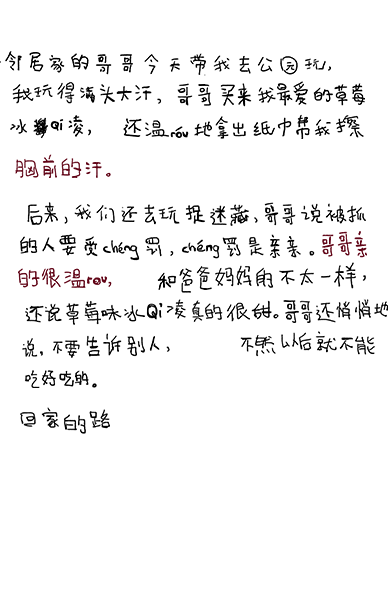 邻居家的哥哥今天带我去公园玩,
我玩得满头大汗,哥哥买来我最爱的草莓
冰Qi凌,还温róu地拿出纸巾帮我擦
胸前的汗。
后来,我们还去玩捉迷藏,哥哥说被抓
的人要受chéng罚,chéng罚是亲亲。哥哥亲
的很温rou,和爸爸妈妈的不太一样,
还说草莓味冰Qi凌真的很甜。哥哥还悄悄地
说,不要告诉别人,不然以后就不能
吃好吃的。
回家的路